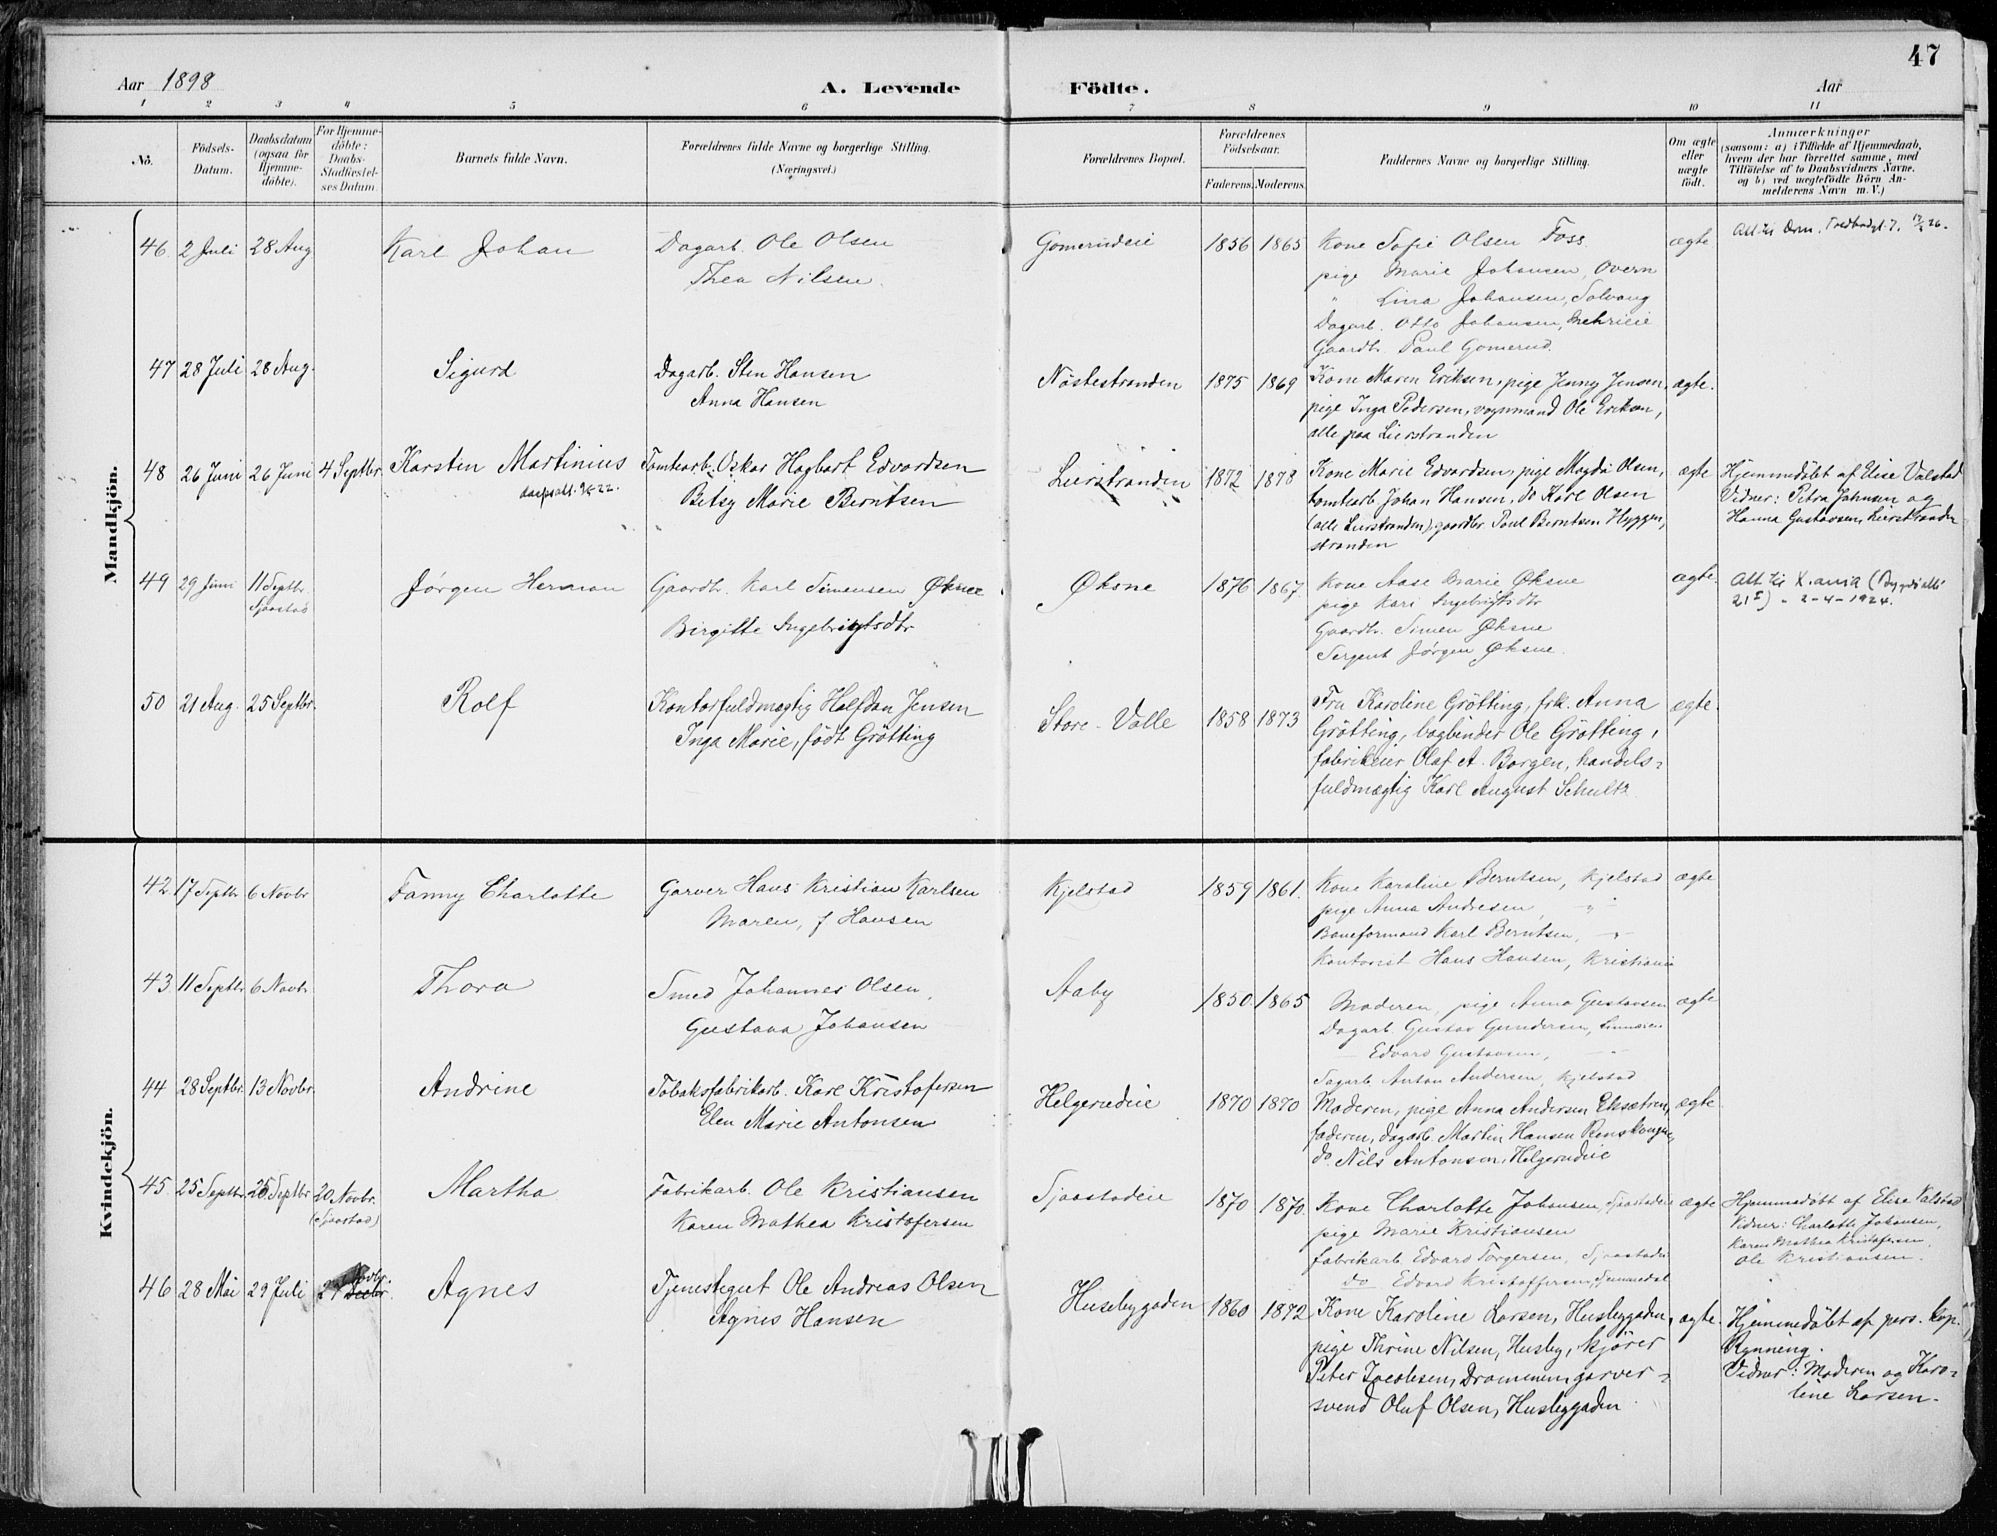 47
Aar 1898 A. Levende Födte. Aar
1 2 3 4 5 6 7 8 9 10 11
No.
Födsels-
Datum.
Daabsdatum
(ogsaa for
Hjemme-
döbte).
For Hjemme-
döbte:
Daabs-
Stadfæstel-
ses Datum.
Barnets fulde Navn.
Forældrenes fulde Navne og borgerlige Stilling.
(Næringsvei.)
Forældrenes Bopæl.
Forældrenes
Födselsaar.
Faderens. Moderens.
Faddernes Navne og borgerlige Stilling.
Om ægte
eller
uægte
födt.
Anmærkninger
(saasom: a) i Tilfælde af Hjemmedaab,
hvem der har forrettet samme, med
Tilföielse af to Daabsvidners Navne.
og b) ved uægtefödte Börn An-
melderens Navn m. V.)
Mandkjön.
46. 2 Juli 28 Aug Karl Johan
Dagarb. Ole Olsen
Thea Nilsen.
Gomerudeie 1856 1865
Kone Sofie Olsen Foss.
pige Marie Johansen, Overn
" Lina Johansen, Solvang
Dagarb. Otto Johansen,
Gaardbr. Paul Gomerud.
ægte
47 28 Juli 28 Aug. Sigurd
Dagarb. Sten Hansen
Anna Hansen
Nöstestranden 1875 1869
Kone Maren Eriksen, pige Jenny Jensen,
pige Inga Pedersen, vognmand Ole Eriksen,
alle paa Lierstranden
ægte.
48 26 Juni 26 Juni 4 Septbr. Karsten Martinius
Tomtearb. Oskar Hagbart Edvardsen
Betsy Marie Berntsen
Lierstranden 1872 1878
Kone Marie Edvardsen, pige Magda Olsen,
tomtearb. Johan Hansen, do Karl Olsen
(alle Lierstranden), gaardbr. Paul Berntsen Hyggen,
stranden
ægte
Hjemmedöbt af Elise Valstad
Vidner: Petra Johnsen og
Hanna Gustavsen, Lierstranden
49 29 Juni 11 Septbr.
Sjaastad
Jørgen Herman
Gaardbr. Karl Simensen Øksne
Birgitte Ingebrigtsdtr
Øksne 1876 1867.
Kone Aase Marie Øksne
pige Kari Ingebrigtsdtr
Gaardbr. Simen Øksne
Sergent Jørgen Øksne.
ægte.
Att til X.ania (Bygdø allé
21 I) - 2-4-1924.
50 21 Aug. 25 Septbr. Rolf
Kontorfuldmægtig Halfdan Jensen
Inga Marie, født Grötting
Store-Valle 1858 1873
Fru Karoline Grötting, frk. Anna
Grötting, bogbinder Ole Grötting,
fabrikeier Olaf A. Borgen, handels-
fuldmægtig Karl August Schultz.
ægte.
Kvindekjön.
42. 17 Septbr 6 Novbr Fanny Charlotte
Garver Hans Kristian Karlsen
Maren, f. Hansen
Kjelstad 1859 1861.
Kone Karoline Berntsen, Kjelstad
pige Anna Andresen, "
Baneformand Karl Berntsen, "
Kontorist Hans Hansen, Kristiania
ægte
43. 11 Septbr 6 Novbr. Thora
Smed Johannes Olsen,
Gustava Johansen
Aaby 1850. 1865
Moderen, pige Anna Gustavsen
Dagarb. Gustav Gundersen,
- Edvard Gustavsen, "
Sagarb. Anton Andersen, Kjelstad
ægte
44 28 Septbr. 13 Novbr. Andrine
Tobaksfabrikarb. Karl Kristofersen
Elen Marie Antonsen
Helgerudeie 1870 1870
Moderen, pige Anna Andersen Eksætren,
faderen, dagarb. Martin Hansen
do. Nils Antonsen, Helgerudeie
ægte
45. 25 Septbr. 25 Septbr 20 Novbr.
(Sjaastad)
Martha
Fabrikarb. Ole Kristiansen
Karen Mathea Kristofersen
Sjaastadeie 1870 1870.
Kone Charlotte Johansen, Sjaastadeie
pige Marie Kristiansen
fabrikarb. Edvard Torgersen, Sjaastadeie
do Edvard Kristoffersen,
ægte
Hjemmedøbt af Elise Valstad
Vidner: Charlotte Johansen,
Karen Mathea Kristofersen,
Ole Kristiansen.
46 28 Mai 29 Juli 27 Novbr. Agnes
Tjenestegut Ole Andreas Olsen
Agnes Hansen
Husebygaden 1860 1872
Kone Karoline Larsen, Husebygaden,
pige Thrine Nilsen, Huseby, kjører
Peter Jacobsen, Drammen, garver-
svend Oluf Olsen, Husebygaden.
ægte.
Hjemmedöbt af pers. kap.
Rynning.
Vidner: Moderen og Karo-
line Larsen.